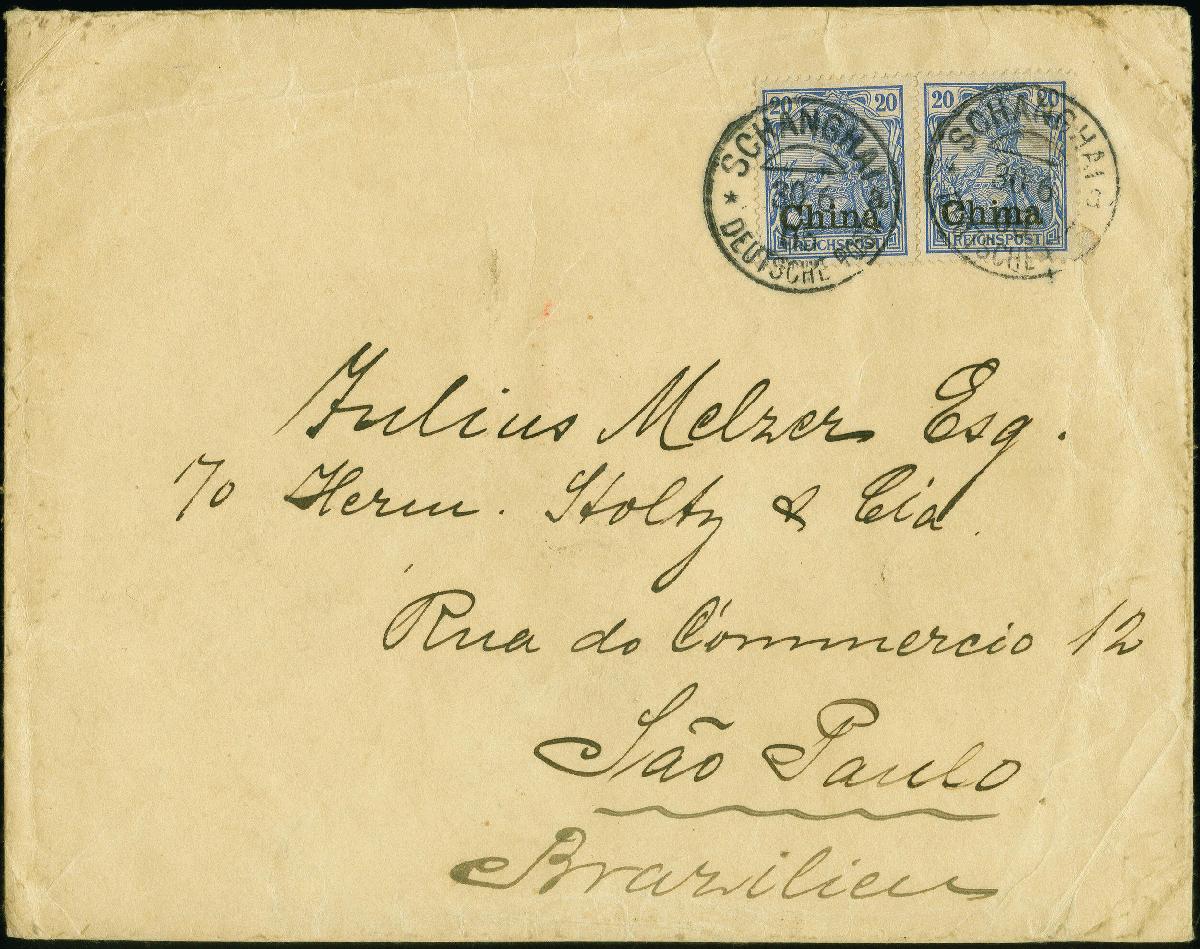 20 20 20 20
SCHANGHAI a SCHANGHAI a
30 6 30 6
China China
REICHSPOST REICHSPOST
* DEUTSCHE POST
Julius Melzer Esq.
c/o Herm. Stoltz & Cia.
Rua do Commercio 12
São Paulo
Brazilien